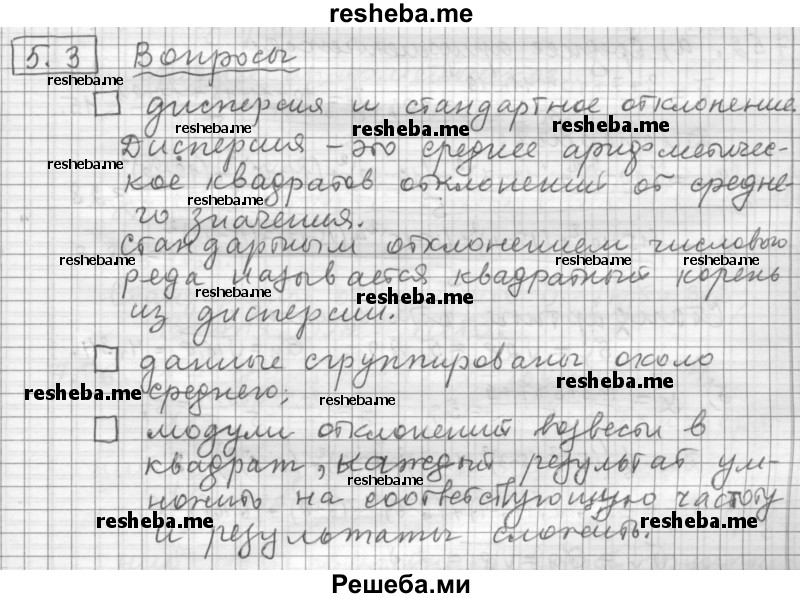 resheba.me
5.3 Вопросы
resheba.me
дисперсия и стандартное отклонение.
resheba.me resheba.me resheba.me
Дисперсия – это среднее арифметичес-
resheba.me
кое квадратов отклонений от средне-
resheba.me
го значения.
стандартным отклонением числового
resheba.me resheba.me resheba.me
реда называется квадратный корень
resheba.me resheba.me
из дисперсии.
данные сгруппированы около
resheba.me resheba.me
среднего;
resheba.me
модули отклонений возвести в
квадрат, каждый результат ум-
resheba.me
ножить на соответствующую частоту
resheba.me resheba.me
и результаты сложить.
Решеба.ми